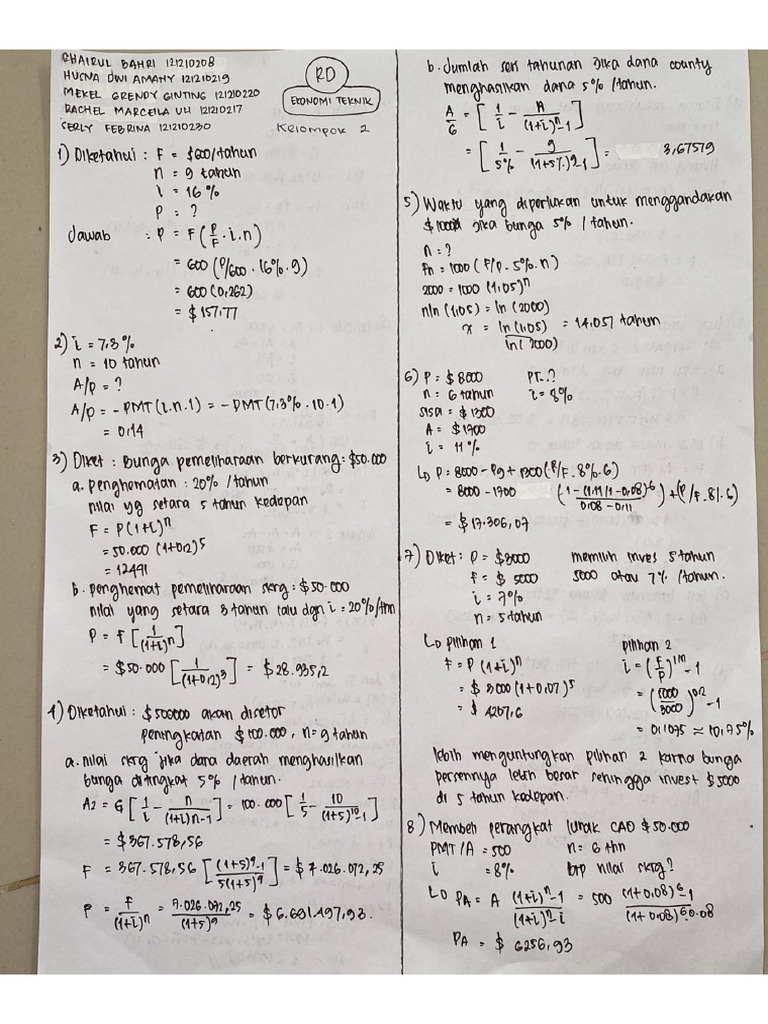 CHAIRUL BAHRI 121210208
HUSNA DWI AMAHY 121210219
MEKEL GRENDY GINTING 121210220
RACHEL MARCELLA ULI 121210217
SERLY FEBRINA 121210230
RD
EKONOMI TEKNIK
Kelompok 2
1) Diketahui : F = $600/tahun
n = 9 tahun
i = 16%
P = ?
Jawab : P = F (P/F . i . n)
= 600 (P/600 . 16% . 9)
= 600 (0,262)
= $157,77
2) i = 7,3%
n = 10 tahun
A/P = ?
A/P = -PMT (i.n.1) = -PMT (7,3% . 10 . 1)
= 0,14
3) Diket : Bunga pemeliharaan berkurang : $50.000
a. penghematan : 20% /tahun
nilai yg setara 5 tahun kedepan
F = P (1+i)^n
= 50.000 (1+0,2)^5
= 12441
b. penghemat pemeliharaan skrg : $50.000
nilai yang setara 3 tahun lalu dgn i = 20%/thn
P = F [1/(1+i)^n]
= $50.000 [1/(1+0,2)^3] = $28.935,2
4) Diketahui : $500000 akan disetor
peningkatan $100.000, n = 9 tahun
a. nilai skrg jika dana daerah menghasilkan
bunga ditingkat 5% /tahun.
A2 = G [1/i - n/(1+i)n-1] = 100.000 [1/5 - 10/(1+5)^10-1]
= $367.578,56
F = 367.578,56 [(1+5)^9-1/5(1+5)^9] = $7.026.072,25
P = F/(1+i)^n = 7.026.072,25/(1+5)^9 = $6.691.497,93.
b. Jumlah seri tahunan jika dana county
menghasilkan dana 5% /tahun.
A/G = [1/i - n/(1+i)^n-1]
= [1/5% - 9/(1+5%)^9-1] = 3,67579
5) Waktu yang diperlukan untuk menggandakan
$1000 jika bunga 5% / tahun.
n = ?
Fn = 1000 (F/P . 5% . n)
2000 = 1000 (1,05)^n
nln (1,05) = ln (2000)
x = ln (1,05)/ln (2000) = 14,057 tahun
6) P = $8000 PT..?
n = 6 tahun i = 8%
sisa = $1300
A = $1700
i = 11%
↳ P = 8000 - Pg + 1300 (P/F . 8% . 6)
= 8000 - 1700 (1-(1.11/1-0.08)^6/0.08-0.11) + (P/F . 8% . 6)
= $17.306,07
7) Diket : P = $3000 memilih inves 5 tahun
F = $ 5000 5000 atau 7% /tahun.
i = 7%
n = 5 tahun
↳ pilihan 1 pilihan 2
F = P (1+i)^n i = (F/P)^1/n - 1
= $ 3000 (1+0,07)^5 = (5000/3000)^0,2 - 1
= $ 4207,6 = 0,1075 ≈ 10,75%
lebih menguntungkan pilihan 2 karna bunga
persennya lebih besar sehingga invest $5000
di 5 tahun kedepan.
8) Membeli perangkat lunak CAD $50.000
PMT/A = 500 n = 6 thn
i = 8% brp nilai skrg?
↳ PA = A (1+i)^n-1/(1+i)^n-i = 500 (1+0,08)^6-1/(1+0.08)^6 0.08
PA = $ 6256,93